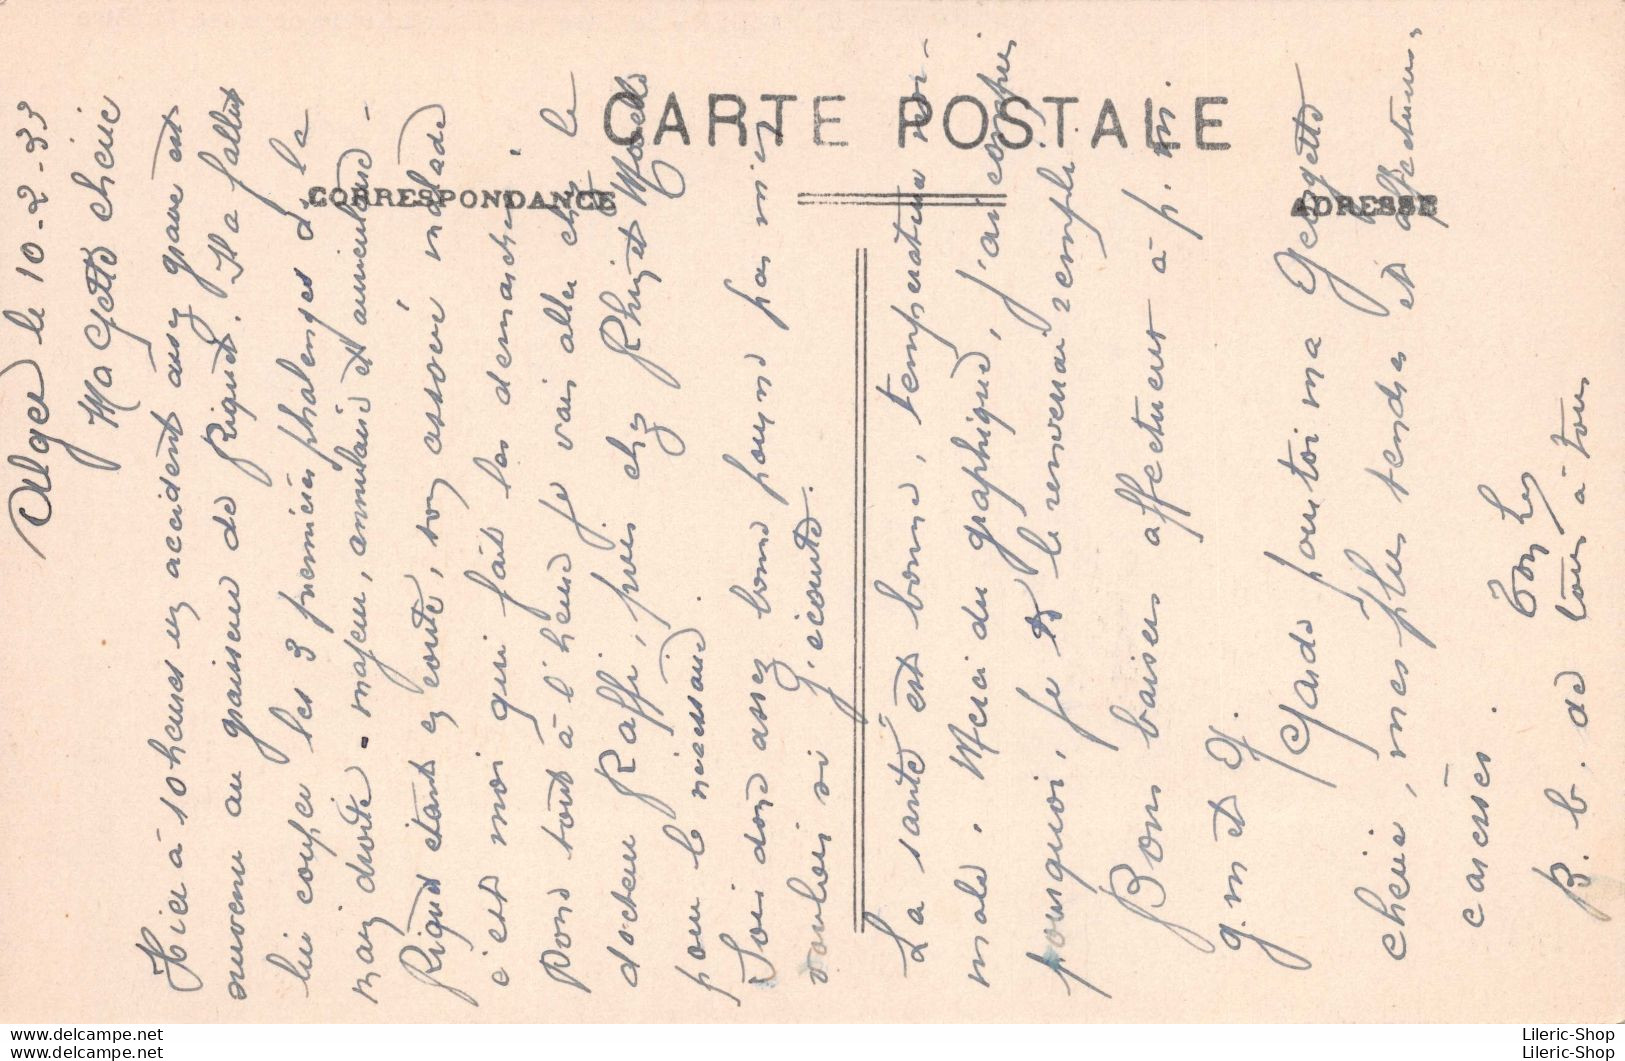 CARTE POSTALE
CORRESPONDANCE
ADRESSE
Alger le 10-2-33
Ma Getto chérie
Hier à 10 heures un accident assez grave est
survenu au graisseur de Riquet. Il a fallut
lui couper les 3 premières phalanges de la
main droite - majeur, annulaire et auriculaire -
Riquet étant en conte, son associé malade
c'est moi qui fait les demarches.
Donc tout à l'heure je vais aller chez le
docteur Raffi, puis chez Rhin et Moselle
pour le nécessaire.
Sois donc assez bonne pour ne pas m'en
vouloir si j'écourte.
La santé est bonne, température nor-
male. Merci du graphique, j'ai compris
pourquoi, je te le renverrai rempli.
Bons baisers affectueux à p. m.
g.m et J.
Garde pour toi ma Georgette
chérie, mes plus tendres et affectueuses
caresses.
Ton
B. b. de tous à tous
Lileric-Shop
delcampe.net
Lileric-Shop
delcampe.net